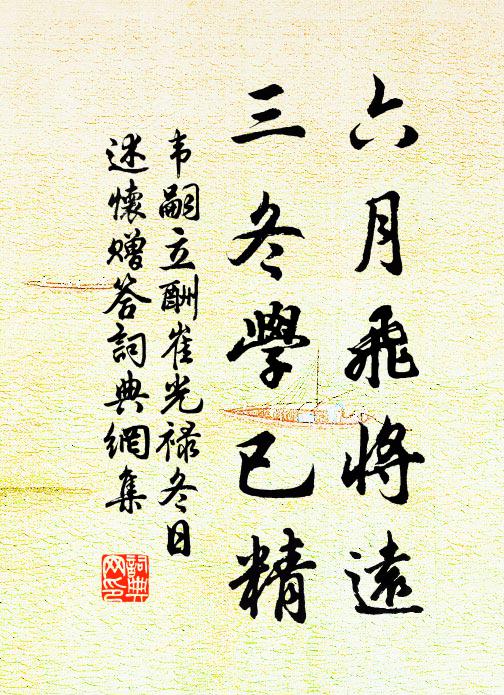 六月飛將遠
三冬學已精
韦嗣立酬崔光禄冬日
述懷赠答詞典網集
詞典
网印